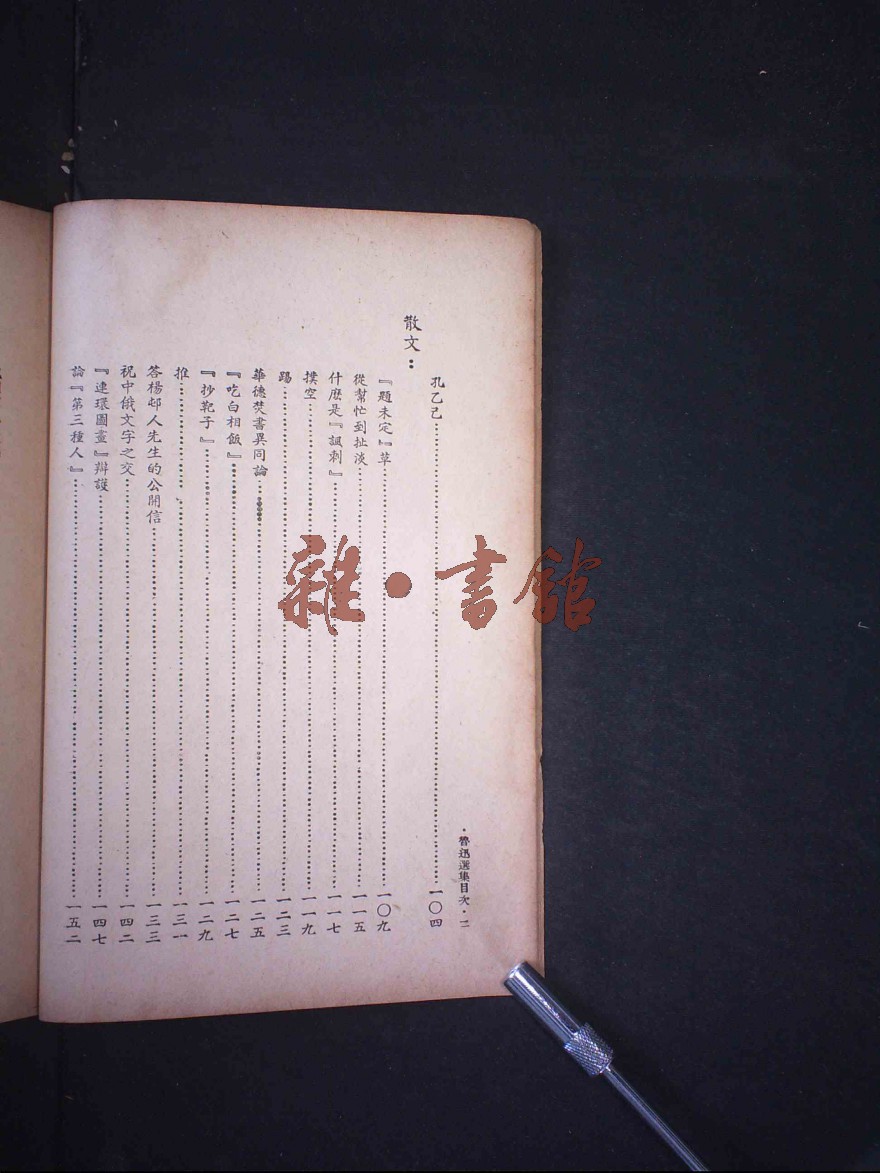 ·魯迅選集目次·二
孔乙己……一〇四
散文：
『題未定』草……一〇九
從幫忙到扯淡……一一五
什麽是『諷刺』……一一七
撲空……一一九
踢……一二三
華德焚書異同論……一二五
『吃白相飯』……一二七
『抄靶子』……一二九
推……一三一
答楊邨人先生的公開信……一三三
祝中俄文字之交……一四二
『連環圖畫』辯護……一四七
論『第三種人』……一五二
雜·書館